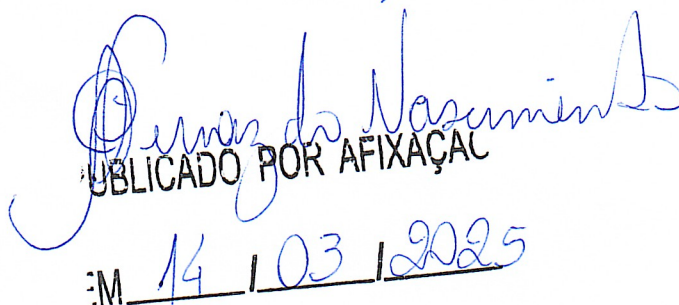 do Nascimento
PUBLICADO POR AFIXAÇÃO
EM 14 / 03 / 2025